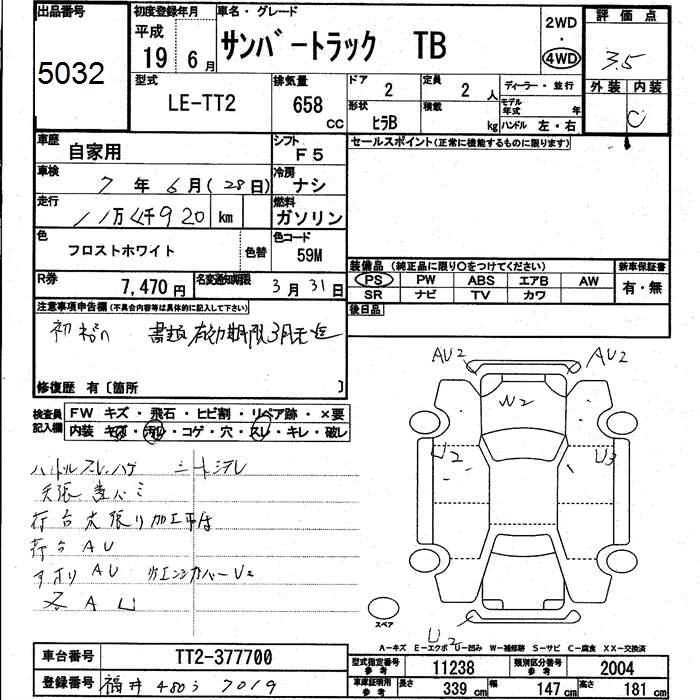 出品番号 初度登録年月 車名・グレード 2WD 評価点
5032 平成 19 6月 サンバートラック TB 4WD 3.5
型式 排気量 ドア 2 定員 2人 ディーラー・並行 外装 内装
LE-TT2 658 CC 形状 ヒラB 積載 kg モデル年式 年 ハンドル 左・右 C
車歴 自家用 シフト F5 セールスポイント(正常に機能するものに限ります)
車検 7年6月(28日) 冷房 ナシ
走行 11万4千920 km 燃料 ガソリン
色 フロストホワイト 色替 色コード 59M
装備品 (純正品に限り○をつけてください) 新車保証書
R券 7,470円 名変通知期限 3月31日 PS PW ABS エアB AW 有・無
SR ナビ TV カワ
注意事項申告欄(不具合内容等は具体的に記入して下さい) 後日品
書類有効期限3月末迄
修復歴 有〔箇所 〕
AV2 AV2
W2
検査員記入欄 FW キズ・飛石・ヒビ割・リペア跡・×要
内装 キズ・汚レ・コゲ・穴・スレ・キレ・破レ
U2 U3
ハンドルスレ、ハゲ シート汚レ
荷台 AU
アオリ AU
スペア
U2
A-キズ E-エクボ U-凹み W-補修跡 S-サビ C-腐食 XX-交換済
車台番号 TT2-377700 型式指定番号 参考 11238 類別区分番号 参考 2004
登録番号 福井 480 う 7019 車庫証明用 参考 長さ 339 cm 幅 147 cm 高さ 181 cm